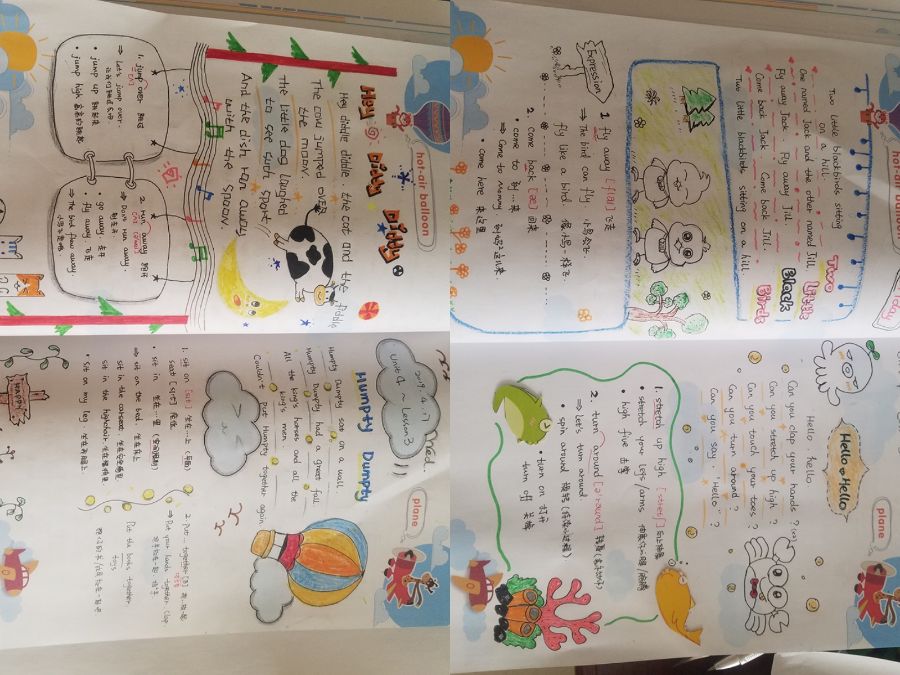 hot-air balloon
Hey Diddy Diddy
Hey diddle diddle the cat and the fiddle
The cow jumped over
the moon.
The little dog laughed
to see such sport.
And the dish ran away
with the spoon.
1. jump over 跳过
⇒ Let's jump over
• jump up 跳起来
• jump high
2. run away
⇒ Don't run away
go away 走开
fly away 飞走
⇒ The bird flew away
hot-air balloon
Two Little Black Birds
Two little blackbirds sitting
on a hill.
One named Jack and the other named Jill.
Fly away Jack. Fly away Jill.
Come back Jack. Come back Jill.
Two little blackbirds sitting on a hill.
Expression
1 fly away 飞走
⇒ The bird can fly
fly like a bird
2. come back 回来
• come to 到...来
⇒ come to Mummy
• come here 来这里
plane
2019.4.17 Wed.
Unit 4 ~ Lesson 3
Humpty Dumpty
Humpty Dumpty sat on a wall
Humpty Dumpty had a great fall.
All the king's horses and all the
king's men.
Couldn't put Humpty together again
1. sit on
seat
• sit in
⇒ sit on the bed.
sit in the
sit in the
• sit on my leg.
2. put together
⇒ Put your hands together. Clap.
Put the books together
toys
HAPPY
plane
Hello Hello
Hello, hello
Can you clap your hands?
Can you stretch up high?
Can you touch your toes?
Can you turn around?
Can you say, "Hello"?
1. stretch up high
• stretch your legs/arms
• high five 击掌
2. turn around
⇒ Let's turn around
• spin around 旋转
• turn on 打开
turn off 关掉